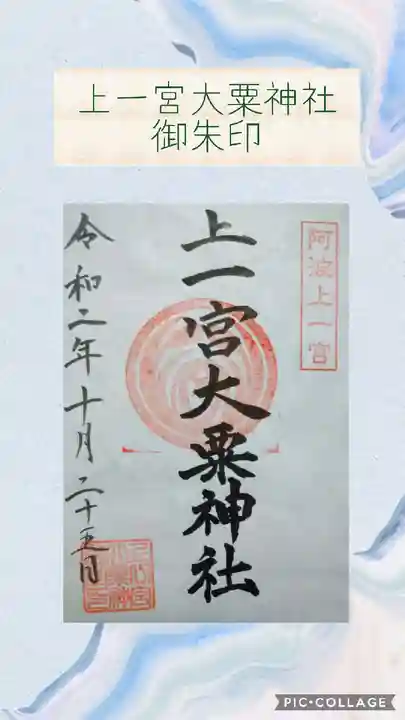 上一宮大粟神社
御朱印
阿波上一宮
上一宮大粟神社
令和二年十月二十五日
PIC•COLLAGE